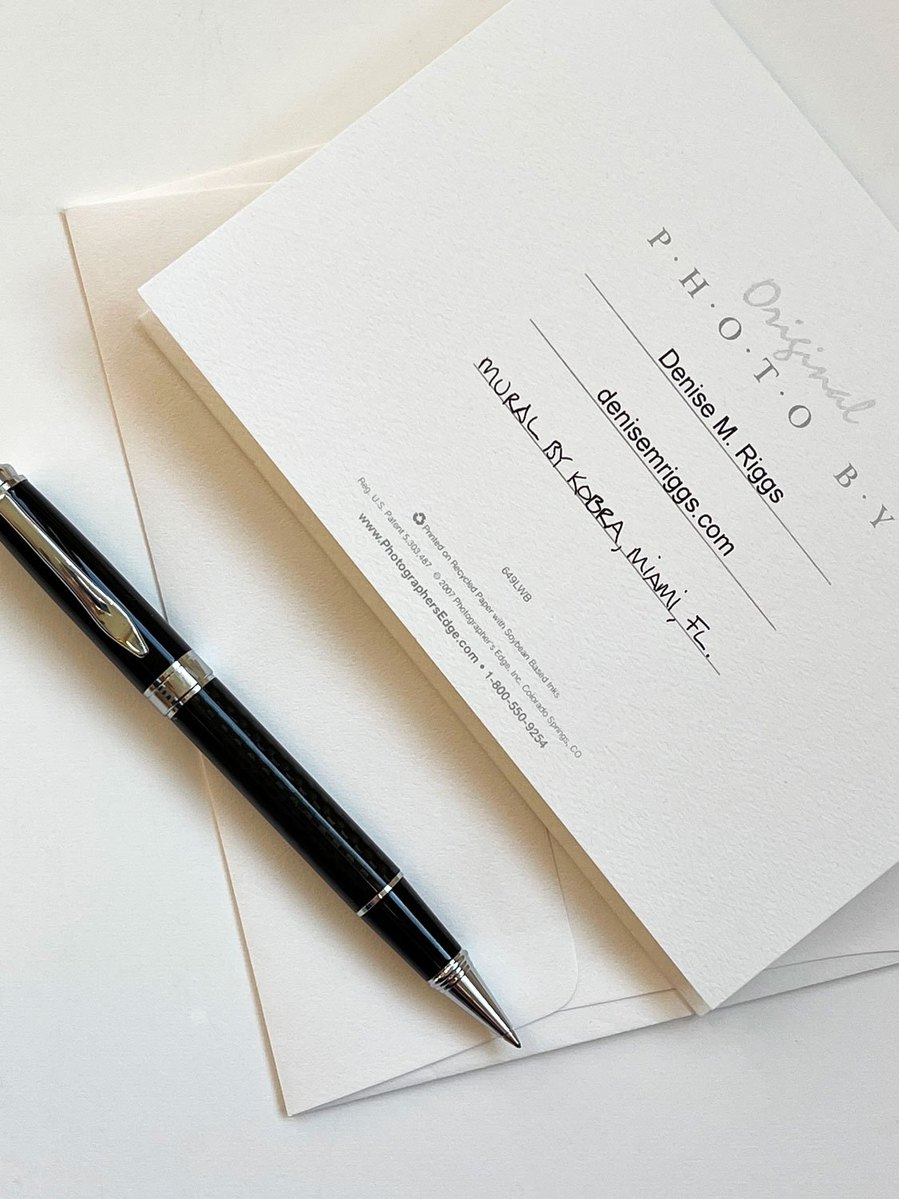 Original
P·H·O·T·O B·Y
Denise M. Riggs
denisemriggs.com
MURAL BY KOBRA, MIAMI, FL.
649LWB
Printed on Recycled Paper with Soybean Based Inks
Reg. U.S. Patent 5,303,487 © 2007 Photographer's Edge, Inc. Colorado Springs, CO
www.PhotographersEdge.com • 1-800-550-9254